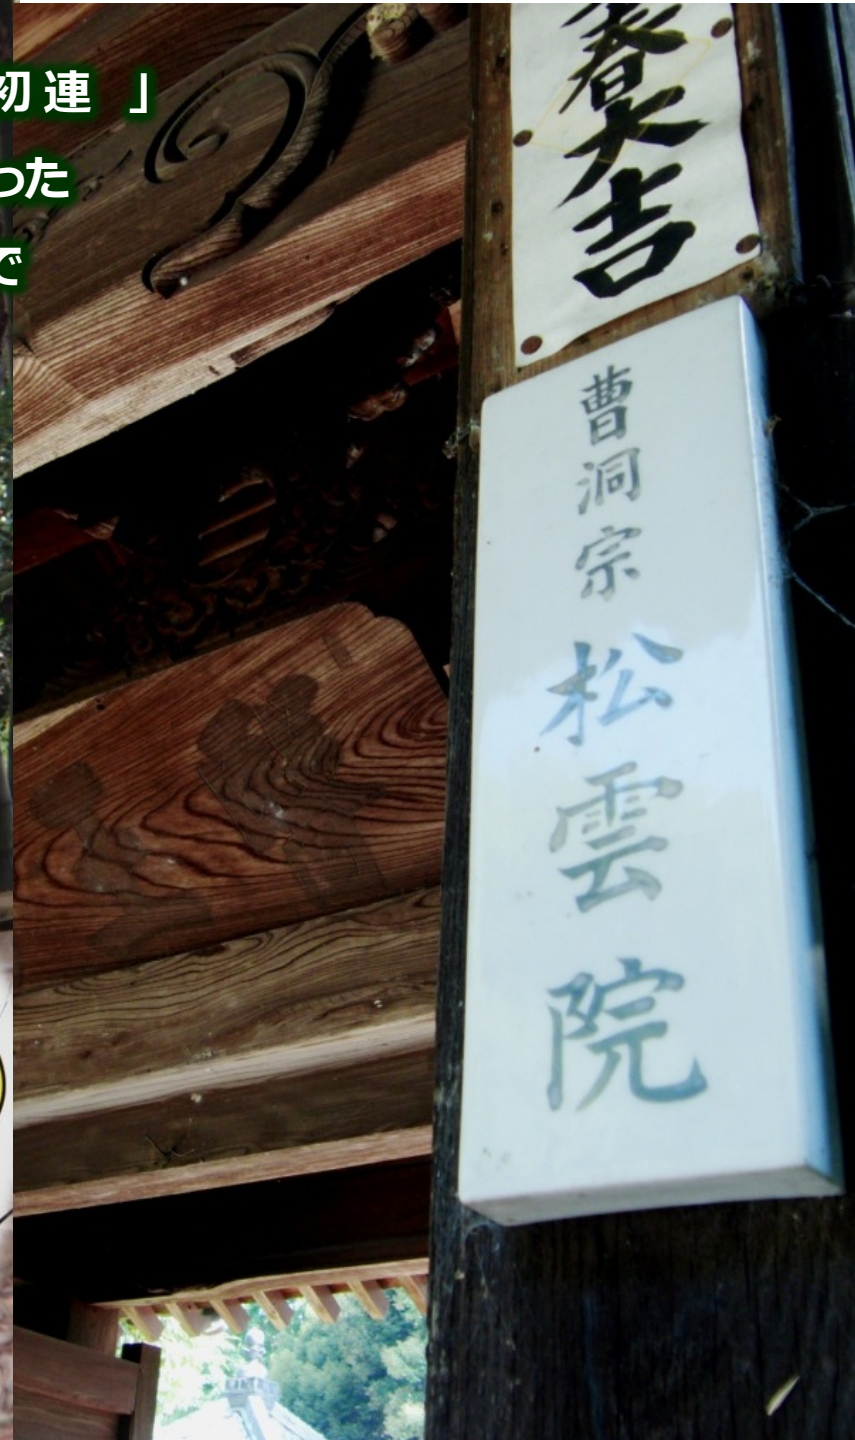 初連 」
った
で
春大吉
曹洞宗 松雲院